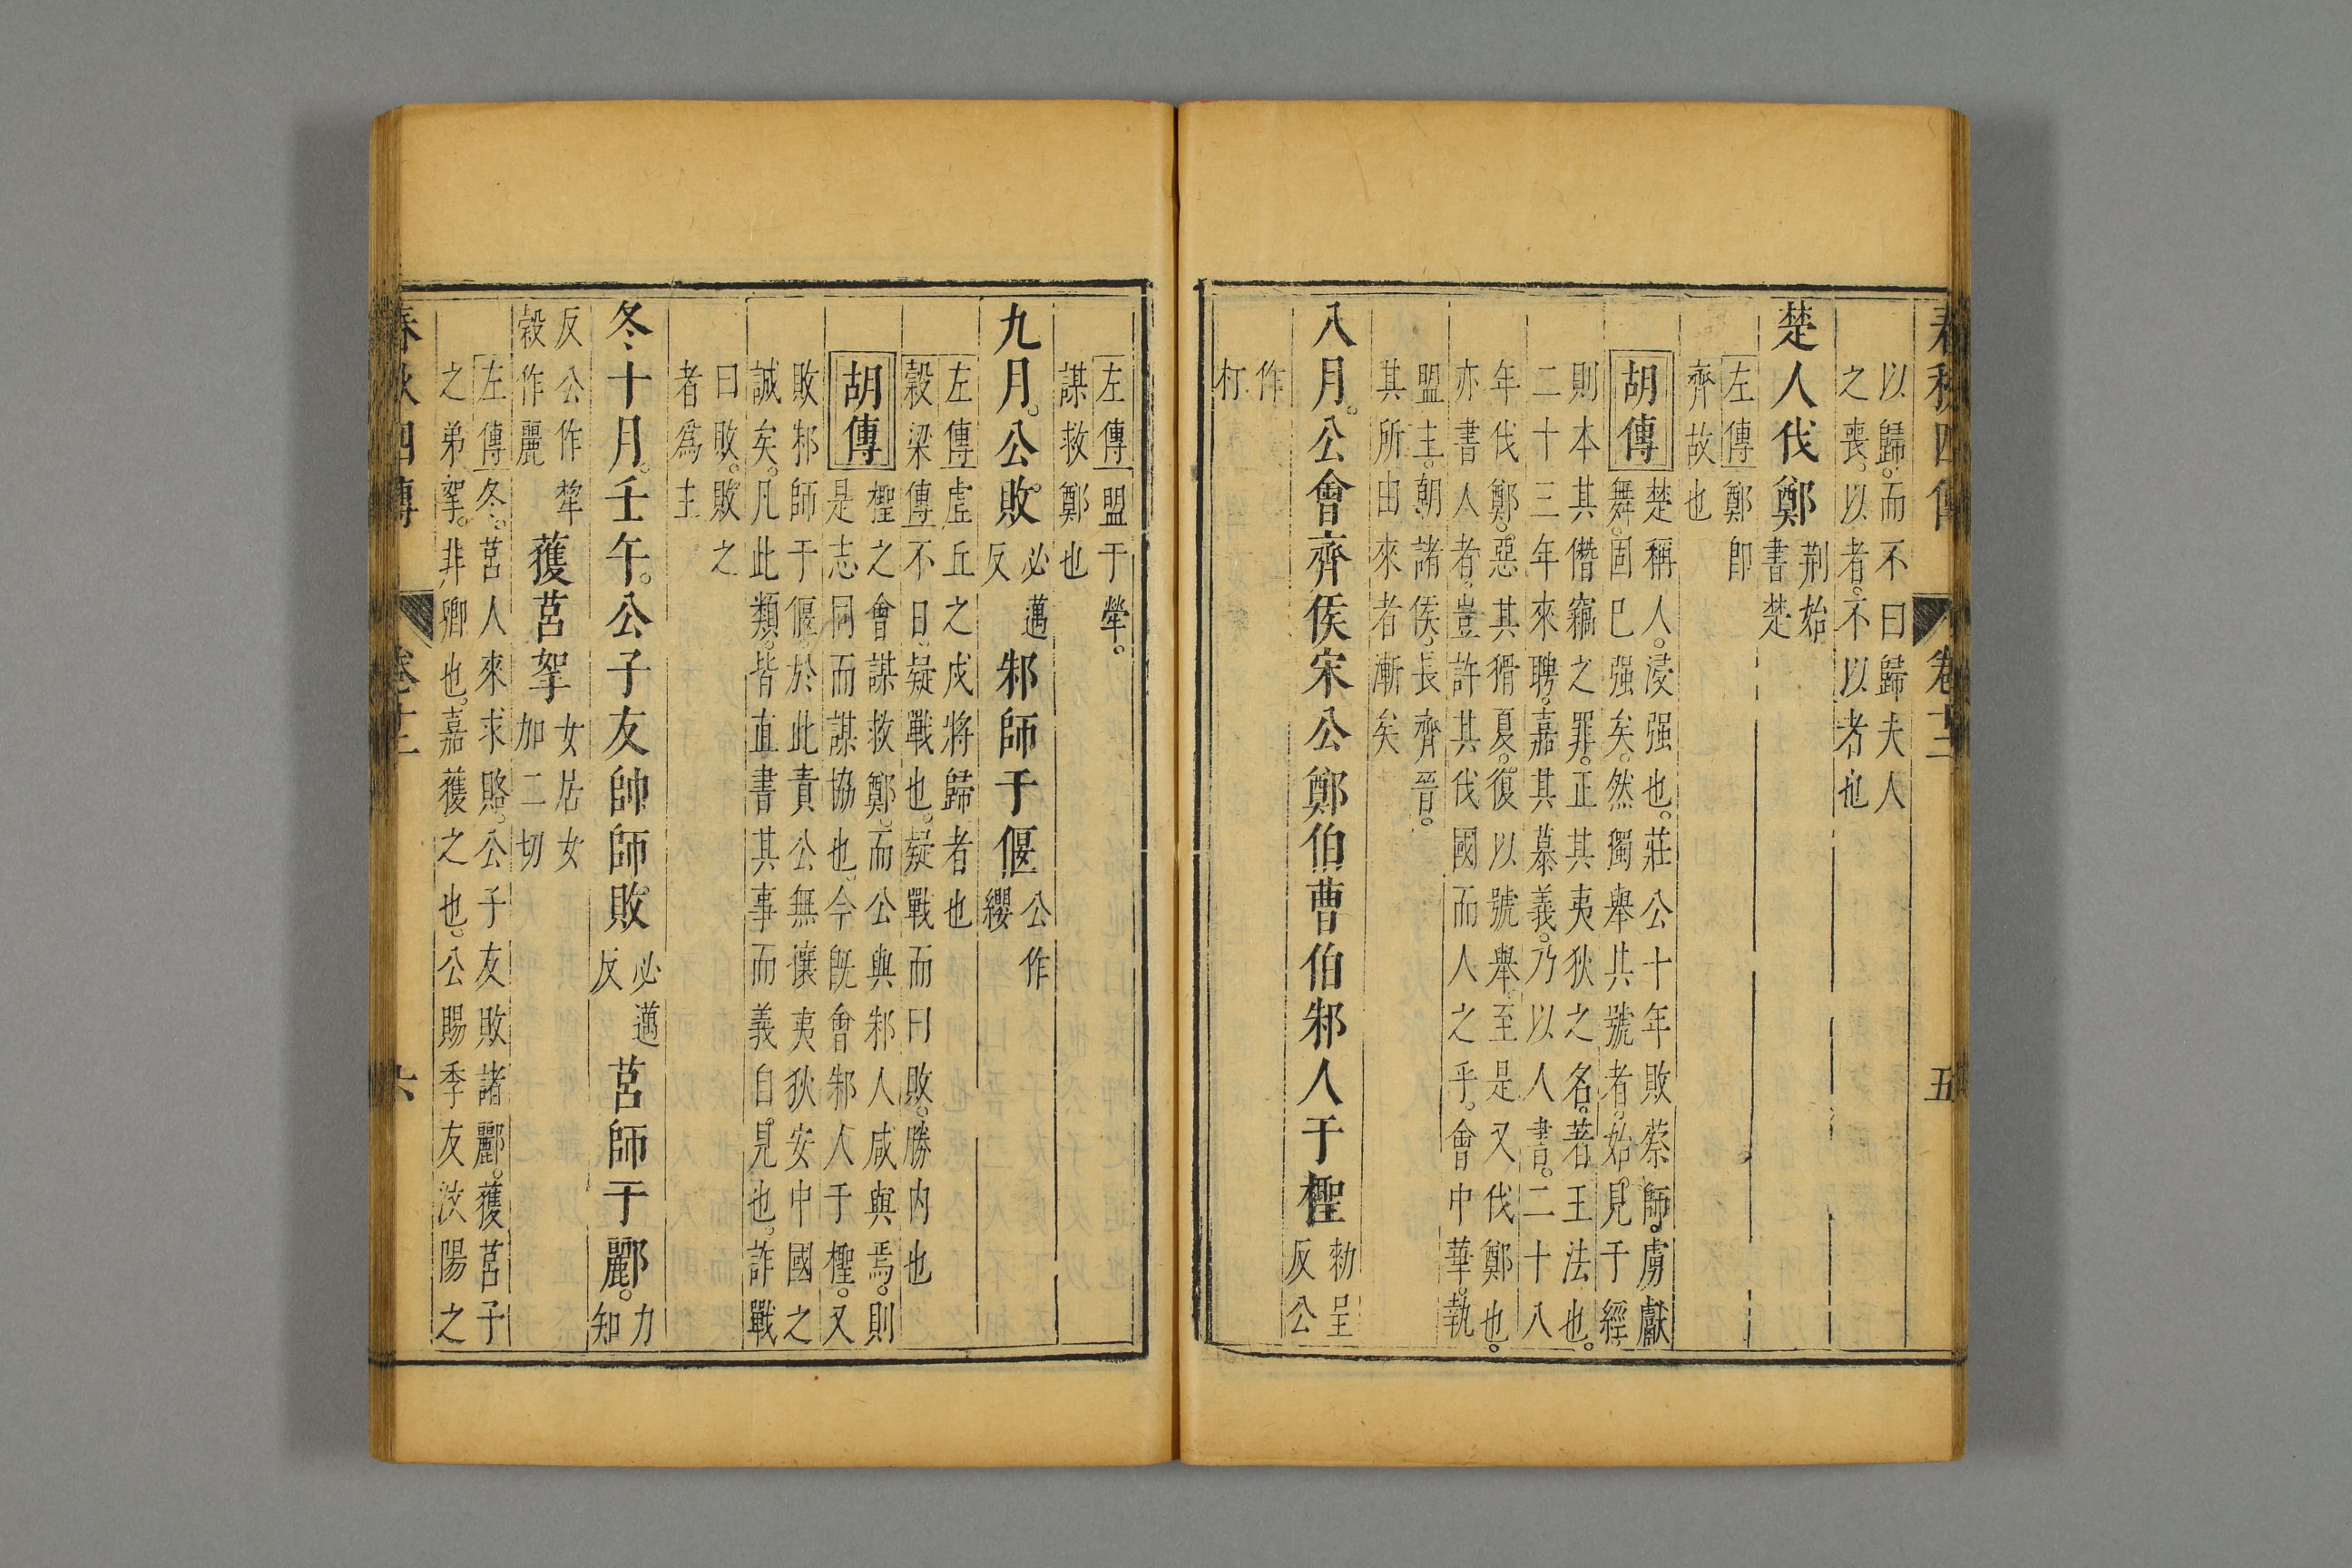 春秋四傳 卷十二 五
以歸。而不曰歸夫人
之喪。以者。不以者也
楚人伐鄭 荆始
書楚
左傳 鄭卽
齊故也
胡傳 楚稱人。浸强也。莊公十年敗蔡師。虜獻
舞。固已强矣。然獨舉其號者。始見于經
則本其僭竊之罪。正其夷狄之名。著王法也。
二十三年來聘。嘉其慕義。乃以人書。二十八
年伐鄭。惡其猾夏。復以號舉。至是又伐鄭也。
亦書人者。豈許其伐國而人之乎。會中華。執
盟主。朝諸侯。長齊晉。
其所由來者漸矣
八月。公會齊侯宋公鄭伯曹伯邾人于檉 勑呈
反公
作
朾
左傳 盟于犖。
謀救鄭也
九月。公敗 必邁
反 邾師于偃 公作
纓
左傳 虛丘之戍將歸者也
穀梁傳 不日。疑戰也。疑戰而曰敗。勝内也
胡傳 檉之會謀救鄭。而公與邾人咸與焉。則
是志同而謀協也。今旣會邾人于檉。又
敗邾師于偃。於此責公無攘夷狄安中國之
誠矣。凡此類。皆直書其事而義自見也。詐戰
曰敗。敗之
者爲主
冬。十月。壬午。公子友帥師敗 必邁
反 莒師于酈。力
知
反公作犂
穀作麗 獲莒挐 女居女
加二切
左傳 冬。莒人來求賂。公子友敗諸酈。獲莒子
之弟挐。非卿也。嘉獲之也。公賜季友汶陽之
春秋四傳 卷十二 六